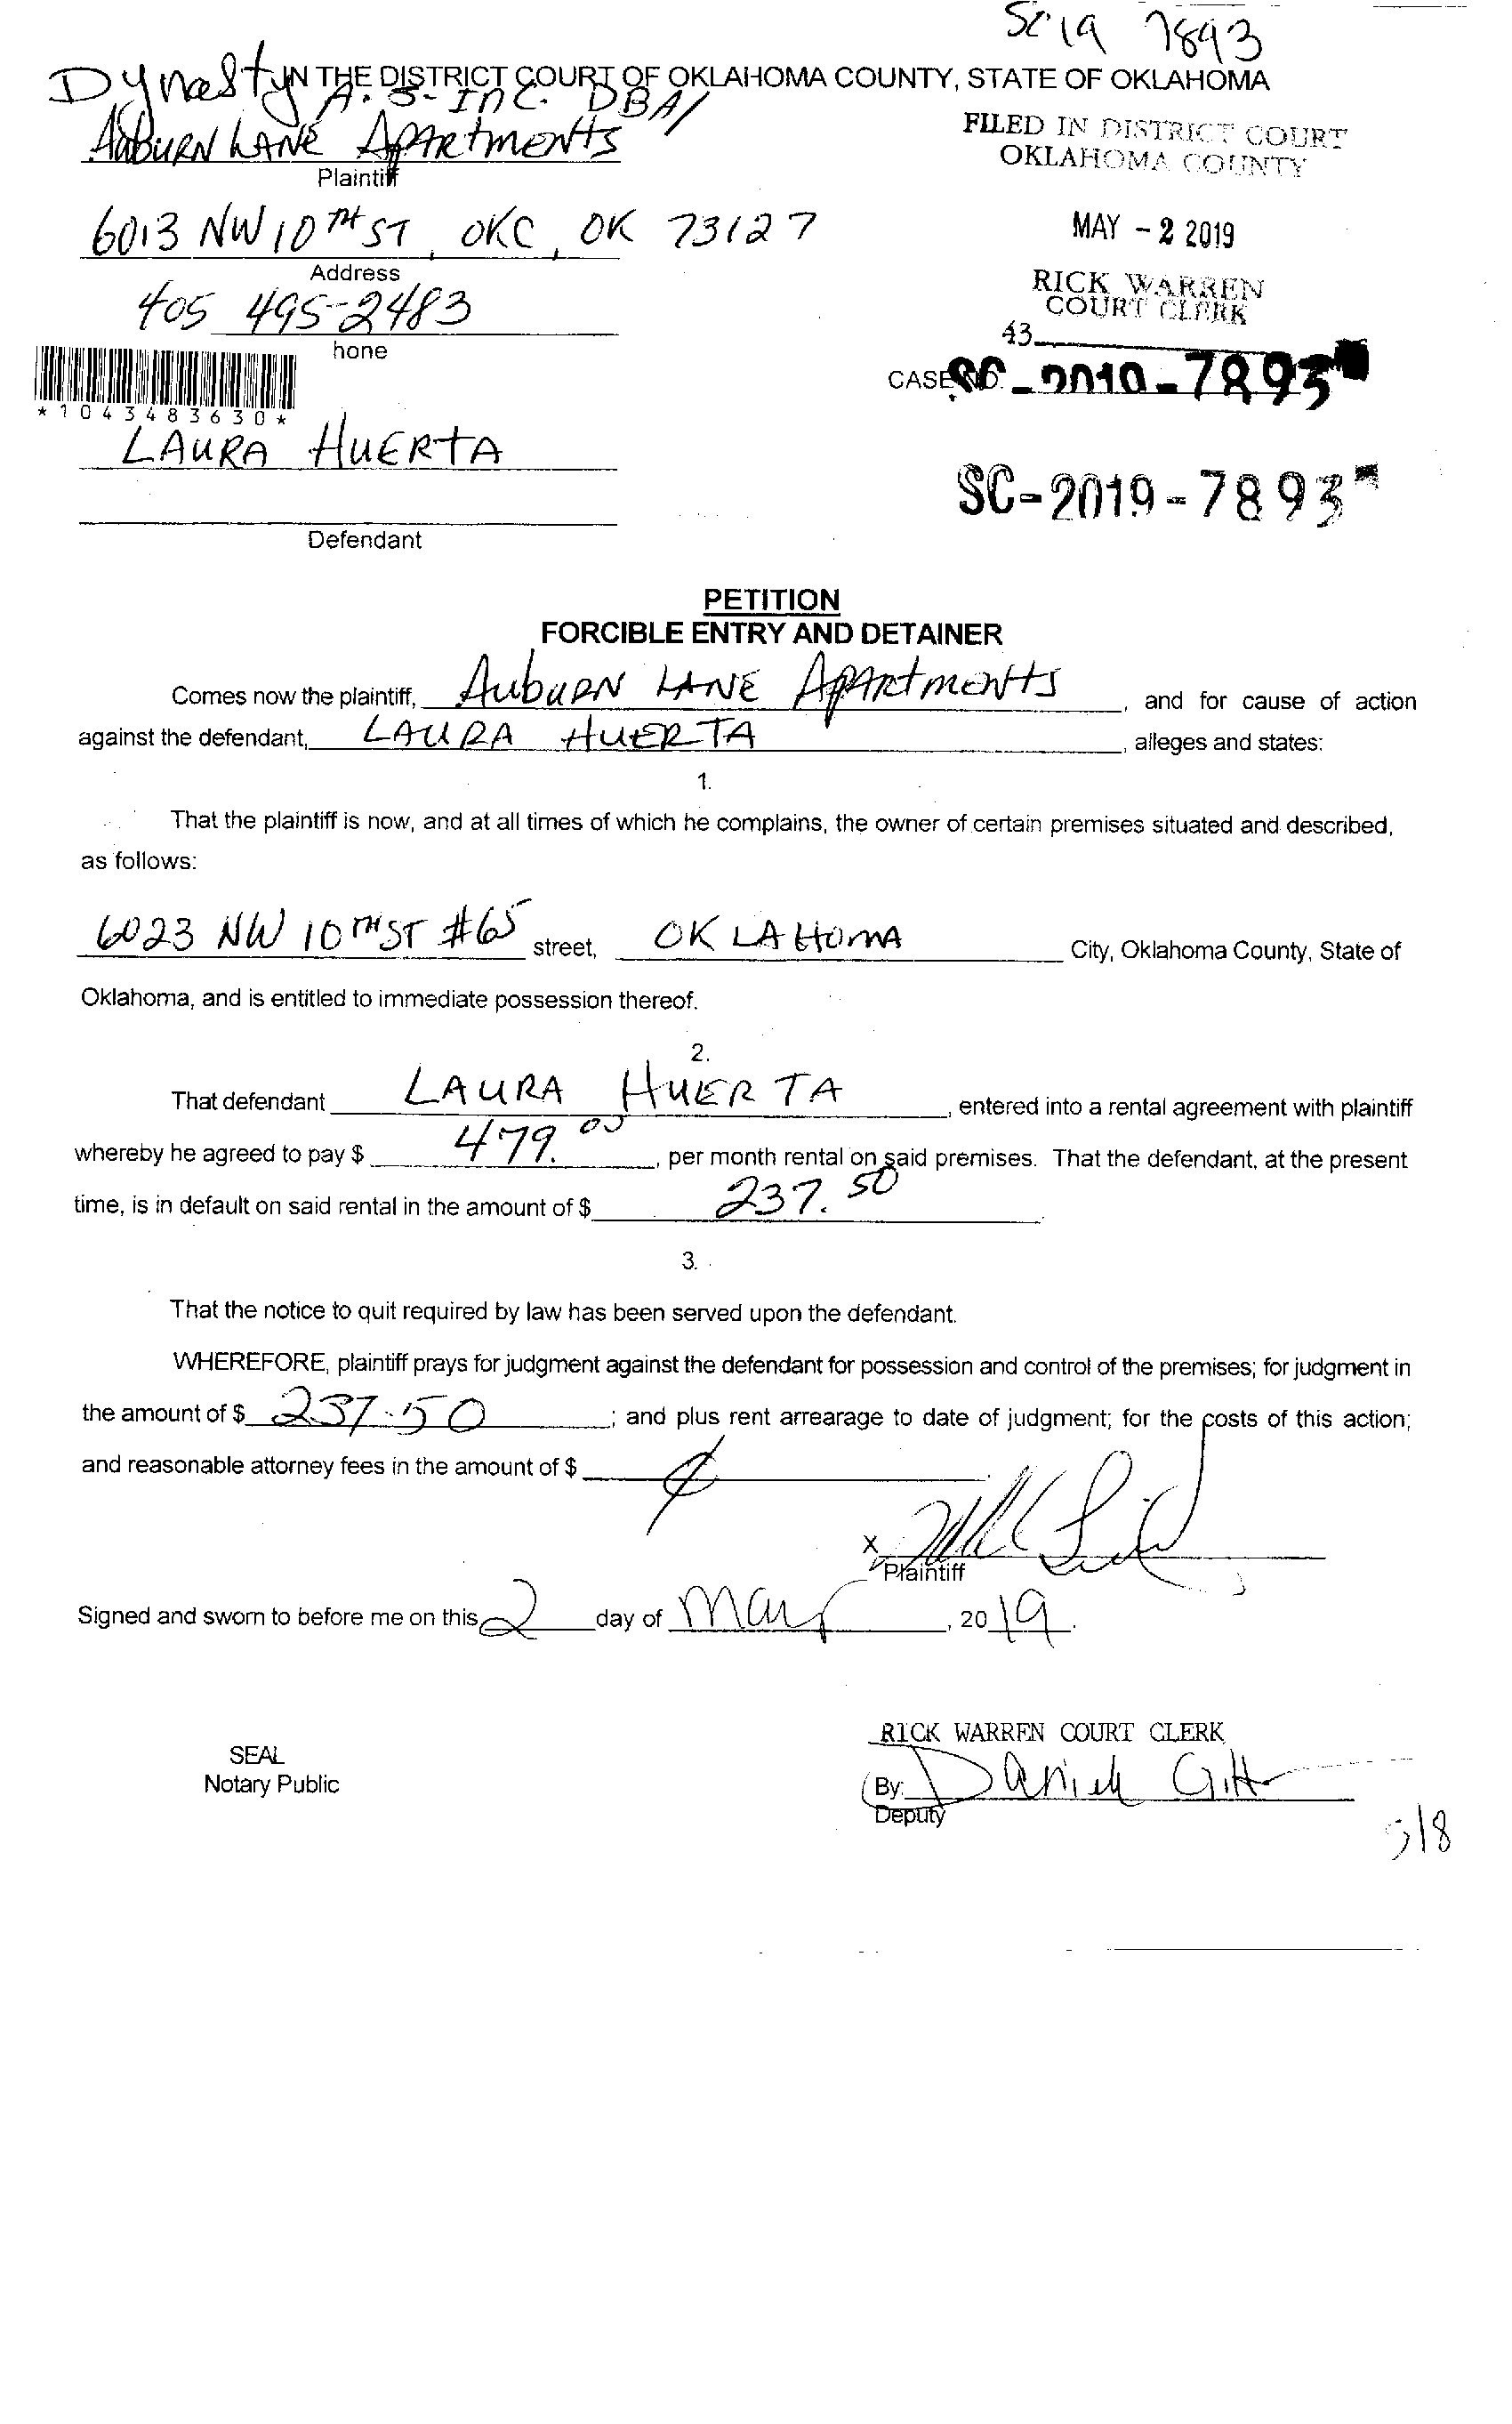 SC 19 7893
IN THE DISTRICT COURT OF OKLAHOMA COUNTY, STATE OF OKLAHOMA
Dynasty A. S. Inc. DBA/
Auburn Lane Apartments
Plaintiff
FILED IN DISTRICT COURT
OKLAHOMA COUNTY
6013 NW 10TH ST, OKC, OK 73127
Address
MAY - 2 2019
405 495-2483
hone
RICK WARREN
COURT CLERK
43
CASE NO. SC-2019-7893
*1043483630*
LAURA HUERTA
SC-2019-7893
Defendant
PETITION
FORCIBLE ENTRY AND DETAINER
Comes now the plaintiff, Auburn LANE Apartments, and for cause of action
against the defendant, LAURA HUERTA, alleges and states:
1.
That the plaintiff is now, and at all times of which he complains, the owner of certain premises situated and described,
as follows:
6023 NW 10TH ST #65 street, OKLAHOMA City, Oklahoma County, State of
Oklahoma, and is entitled to immediate possession thereof.
2.
That defendant LAURA HUERTA, entered into a rental agreement with plaintiff
whereby he agreed to pay $ 479.00, per month rental on said premises. That the defendant, at the present
time, is in default on said rental in the amount of $ 237.50.
3.
That the notice to quit required by law has been served upon the defendant.
WHEREFORE, plaintiff prays for judgment against the defendant for possession and control of the premises; for judgment in
the amount of $ 237.50; and plus rent arrearage to date of judgment; for the costs of this action;
and reasonable attorney fees in the amount of $
X
Plaintiff
Signed and sworn to before me on this 2 day of May, 2019.
RICK WARREN COURT CLERK
SEAL
Notary Public
By:
Deputy
5/8